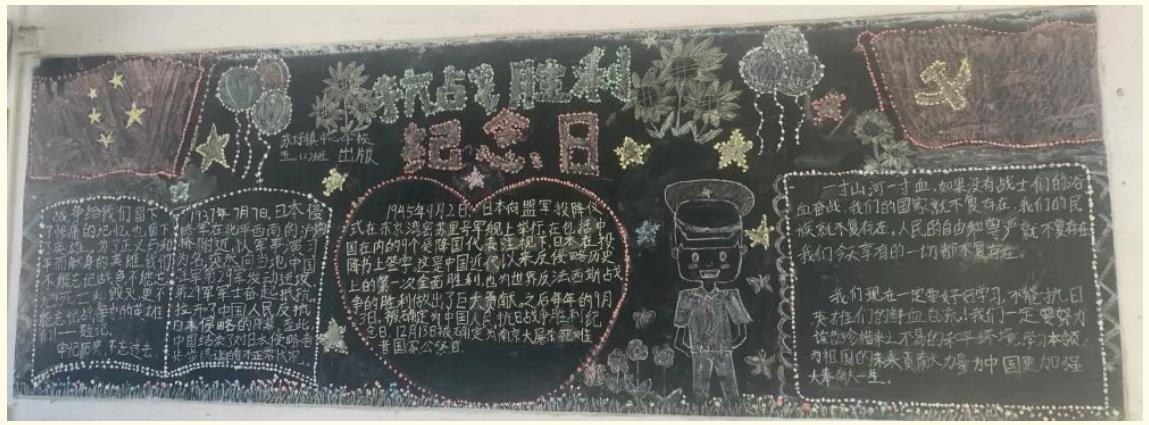 抗战胜利
纪念日
中心学校
出版
战争给我们留下
了惨痛的记忆,也留下
了英雄,为正义与和
平而献身的英雄,我们
不能忘记战争,不能忘
更不
能忘记战争中的英雄
们
牢记历史,不忘过去
1937年7月7日,日本侵
略军在北平西南的
桥附近,以军事演习
为名,突然向当地中国
驻军第29军发动进攻,
第29军奋起抵抗,
拉开了中国人民反抗
日本侵略的序幕,至此
1945年9月2日,日本向盟军投降仪
式在东京湾密苏里号军舰上举行,在包括中
国在内的9个受降国代表注视下,日本在投
降书上签字,这是中国近代以来反侵略历史
上的第一次全面胜利,也为世界反法西斯战
争的胜利做出了巨大贡献,之后每年的9月
3日,被确定为中国人民抗日战争胜利纪
念日,12月13被确定为南京大屠杀死难
者国家公祭日。
一寸山河一寸血,如果没有战士们的浴
血奋战,我们的国家就不复存在,我们的民
族就不复存在,人民的自由和尊严就不复存在
我们今天享有的一切都不复存在。
我们现在一定要好好学习,不能抗日
英雄们的鲜血白流!我们一定要努力
读书珍惜来之不易的和平环境,学习本领,
为祖国的未来贡献力量为中国更加强
大奉献一生。